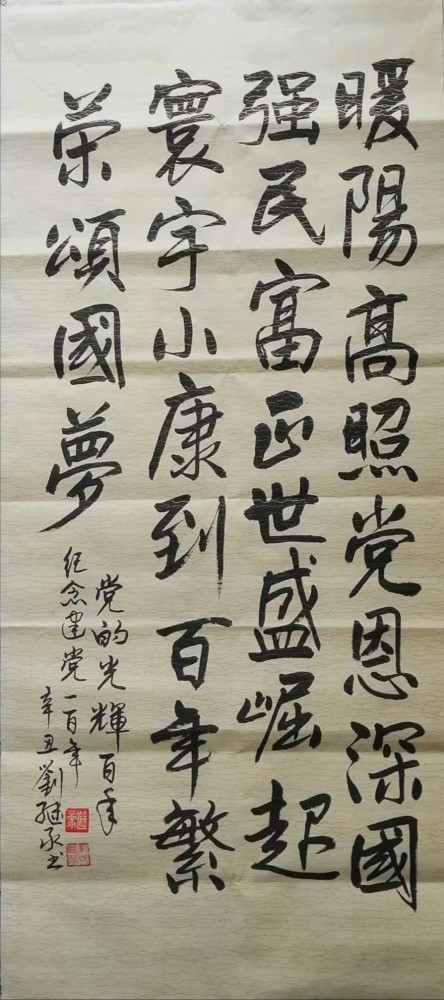 暖陽高照党恩深國
强民富正世盛崛起
寰宇小康到百年繁
荣頌國夢
党的光輝百年
纪念建党一百年
辛丑劉継承书